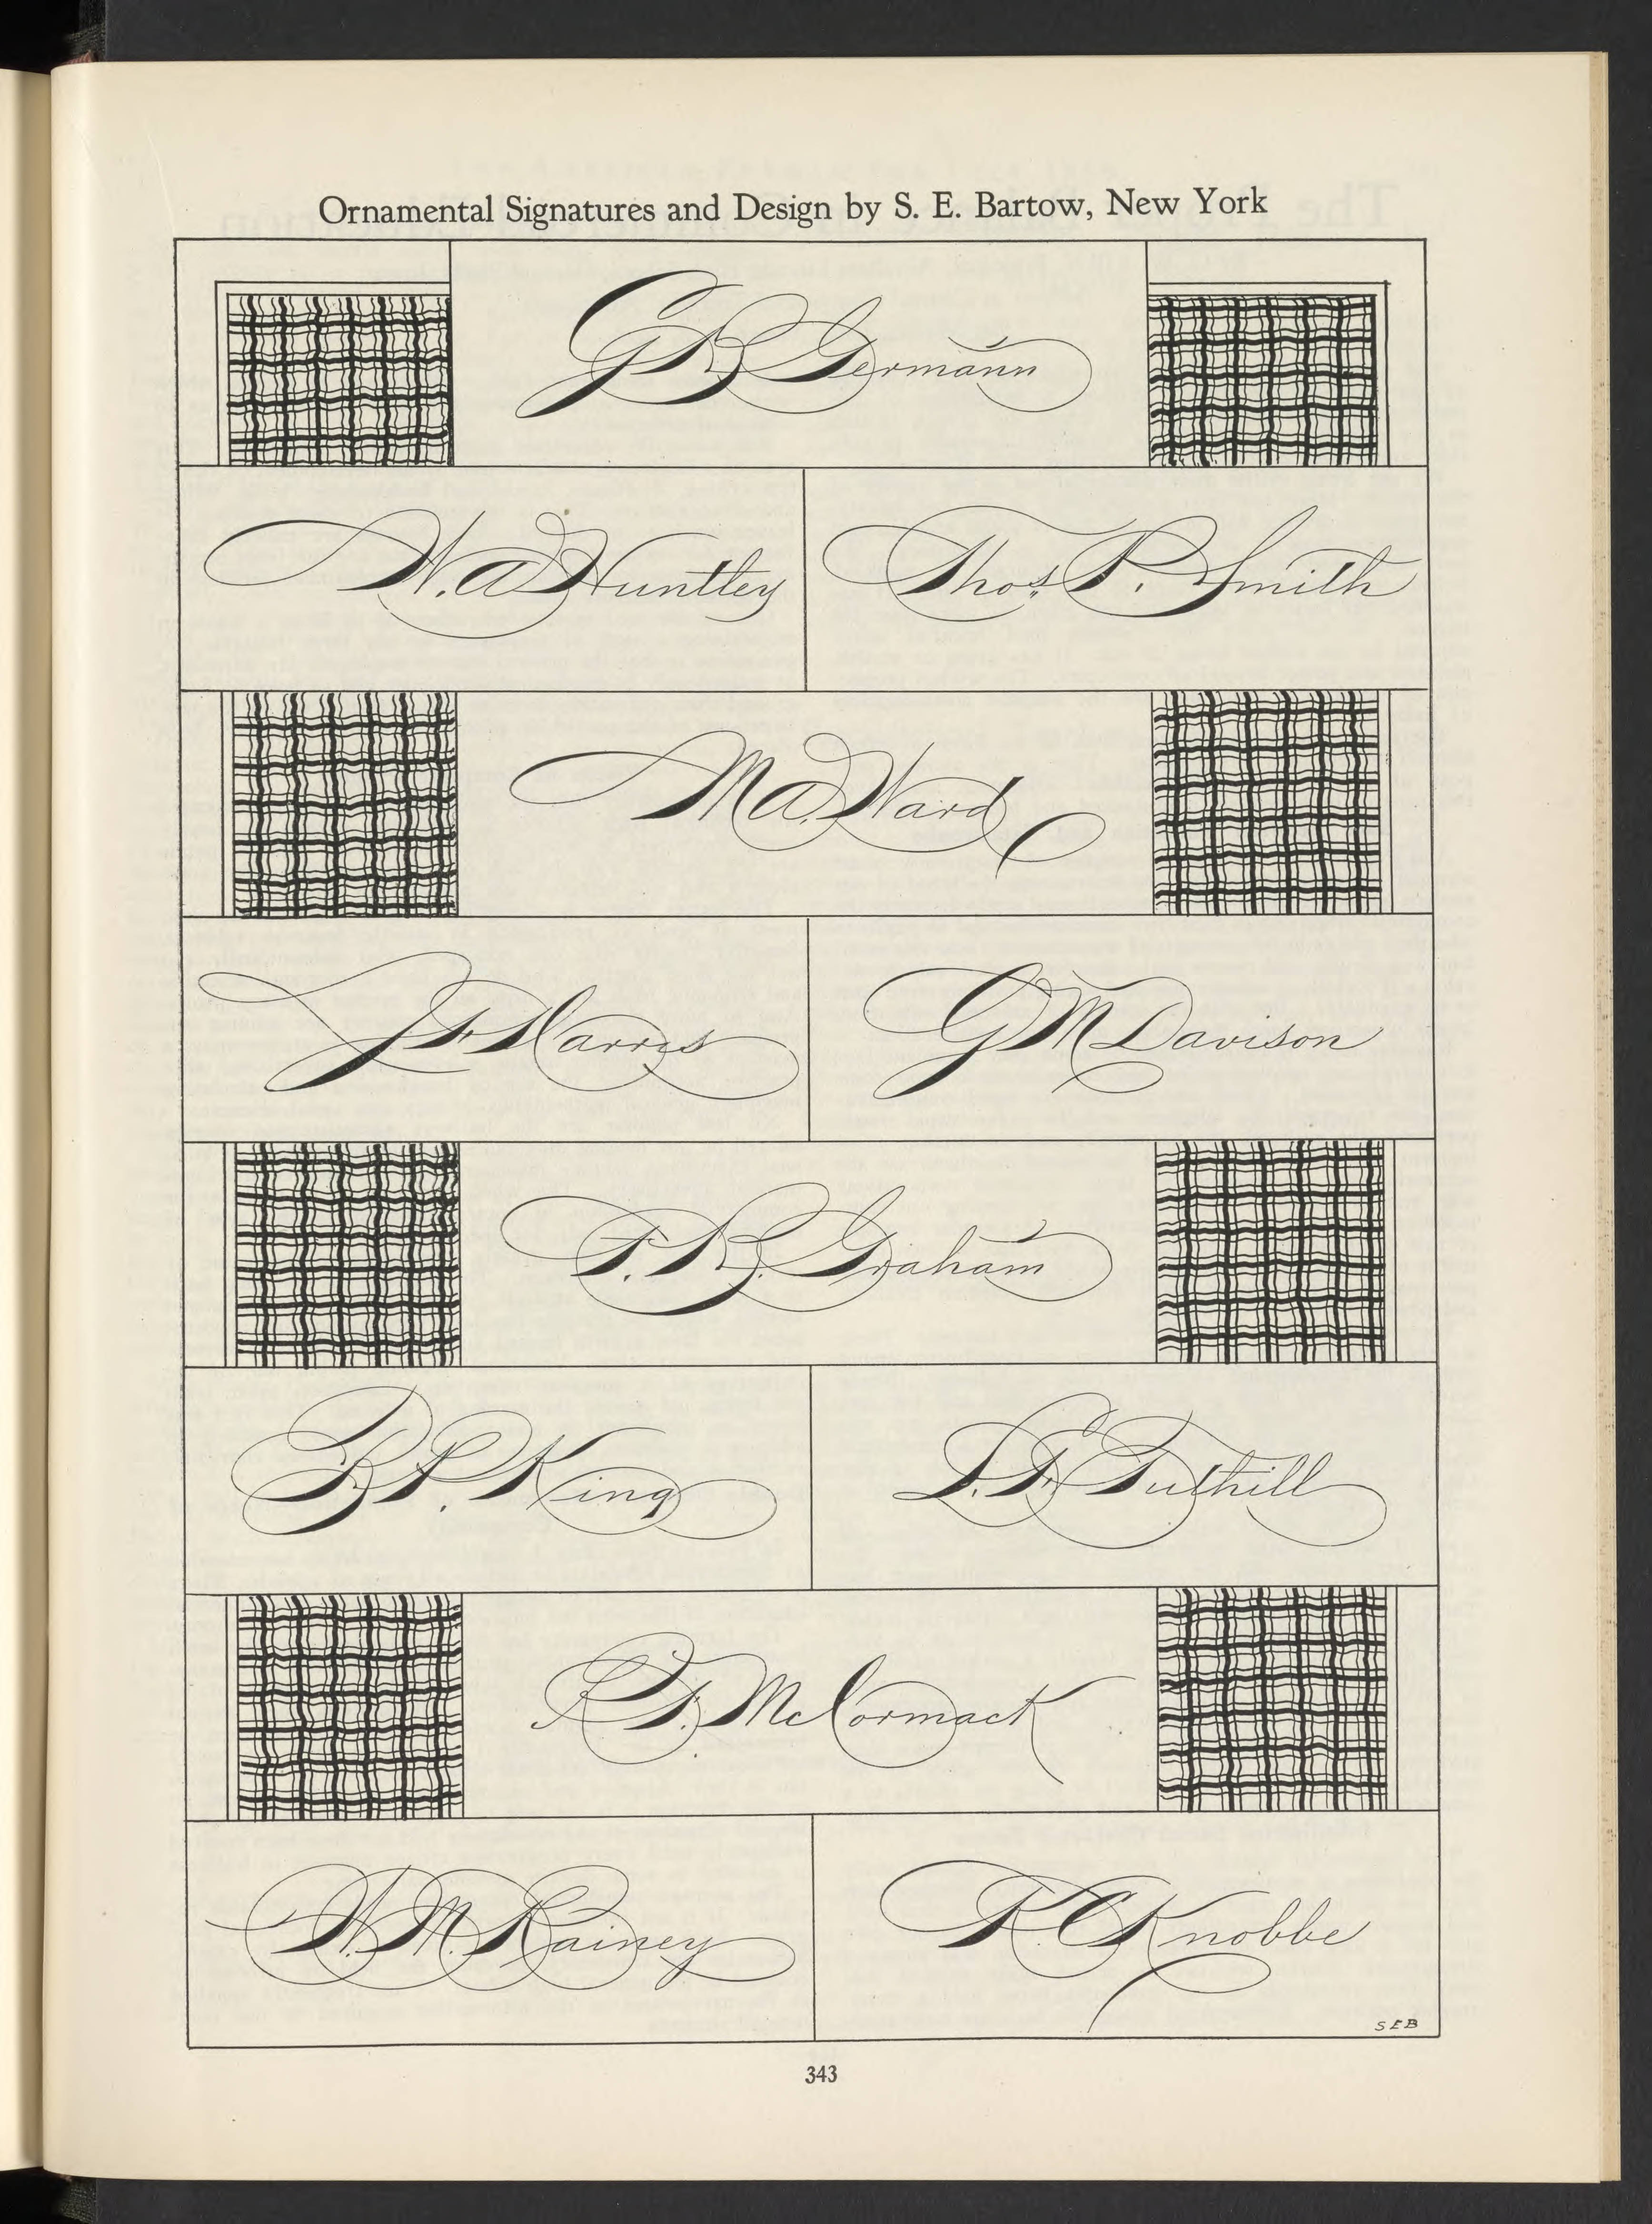 Ornamental Signatures and Design by S. E. Bartow, New York
G B Germann
W. A Huntley
Thos. P. Smith
M A. Ward
J F Harris
G M Davison
F. B. Graham
B P. King
L. F. Tuthill
P F. McCormack
W. M. Rainey
R. C Knobbe
SEB
343